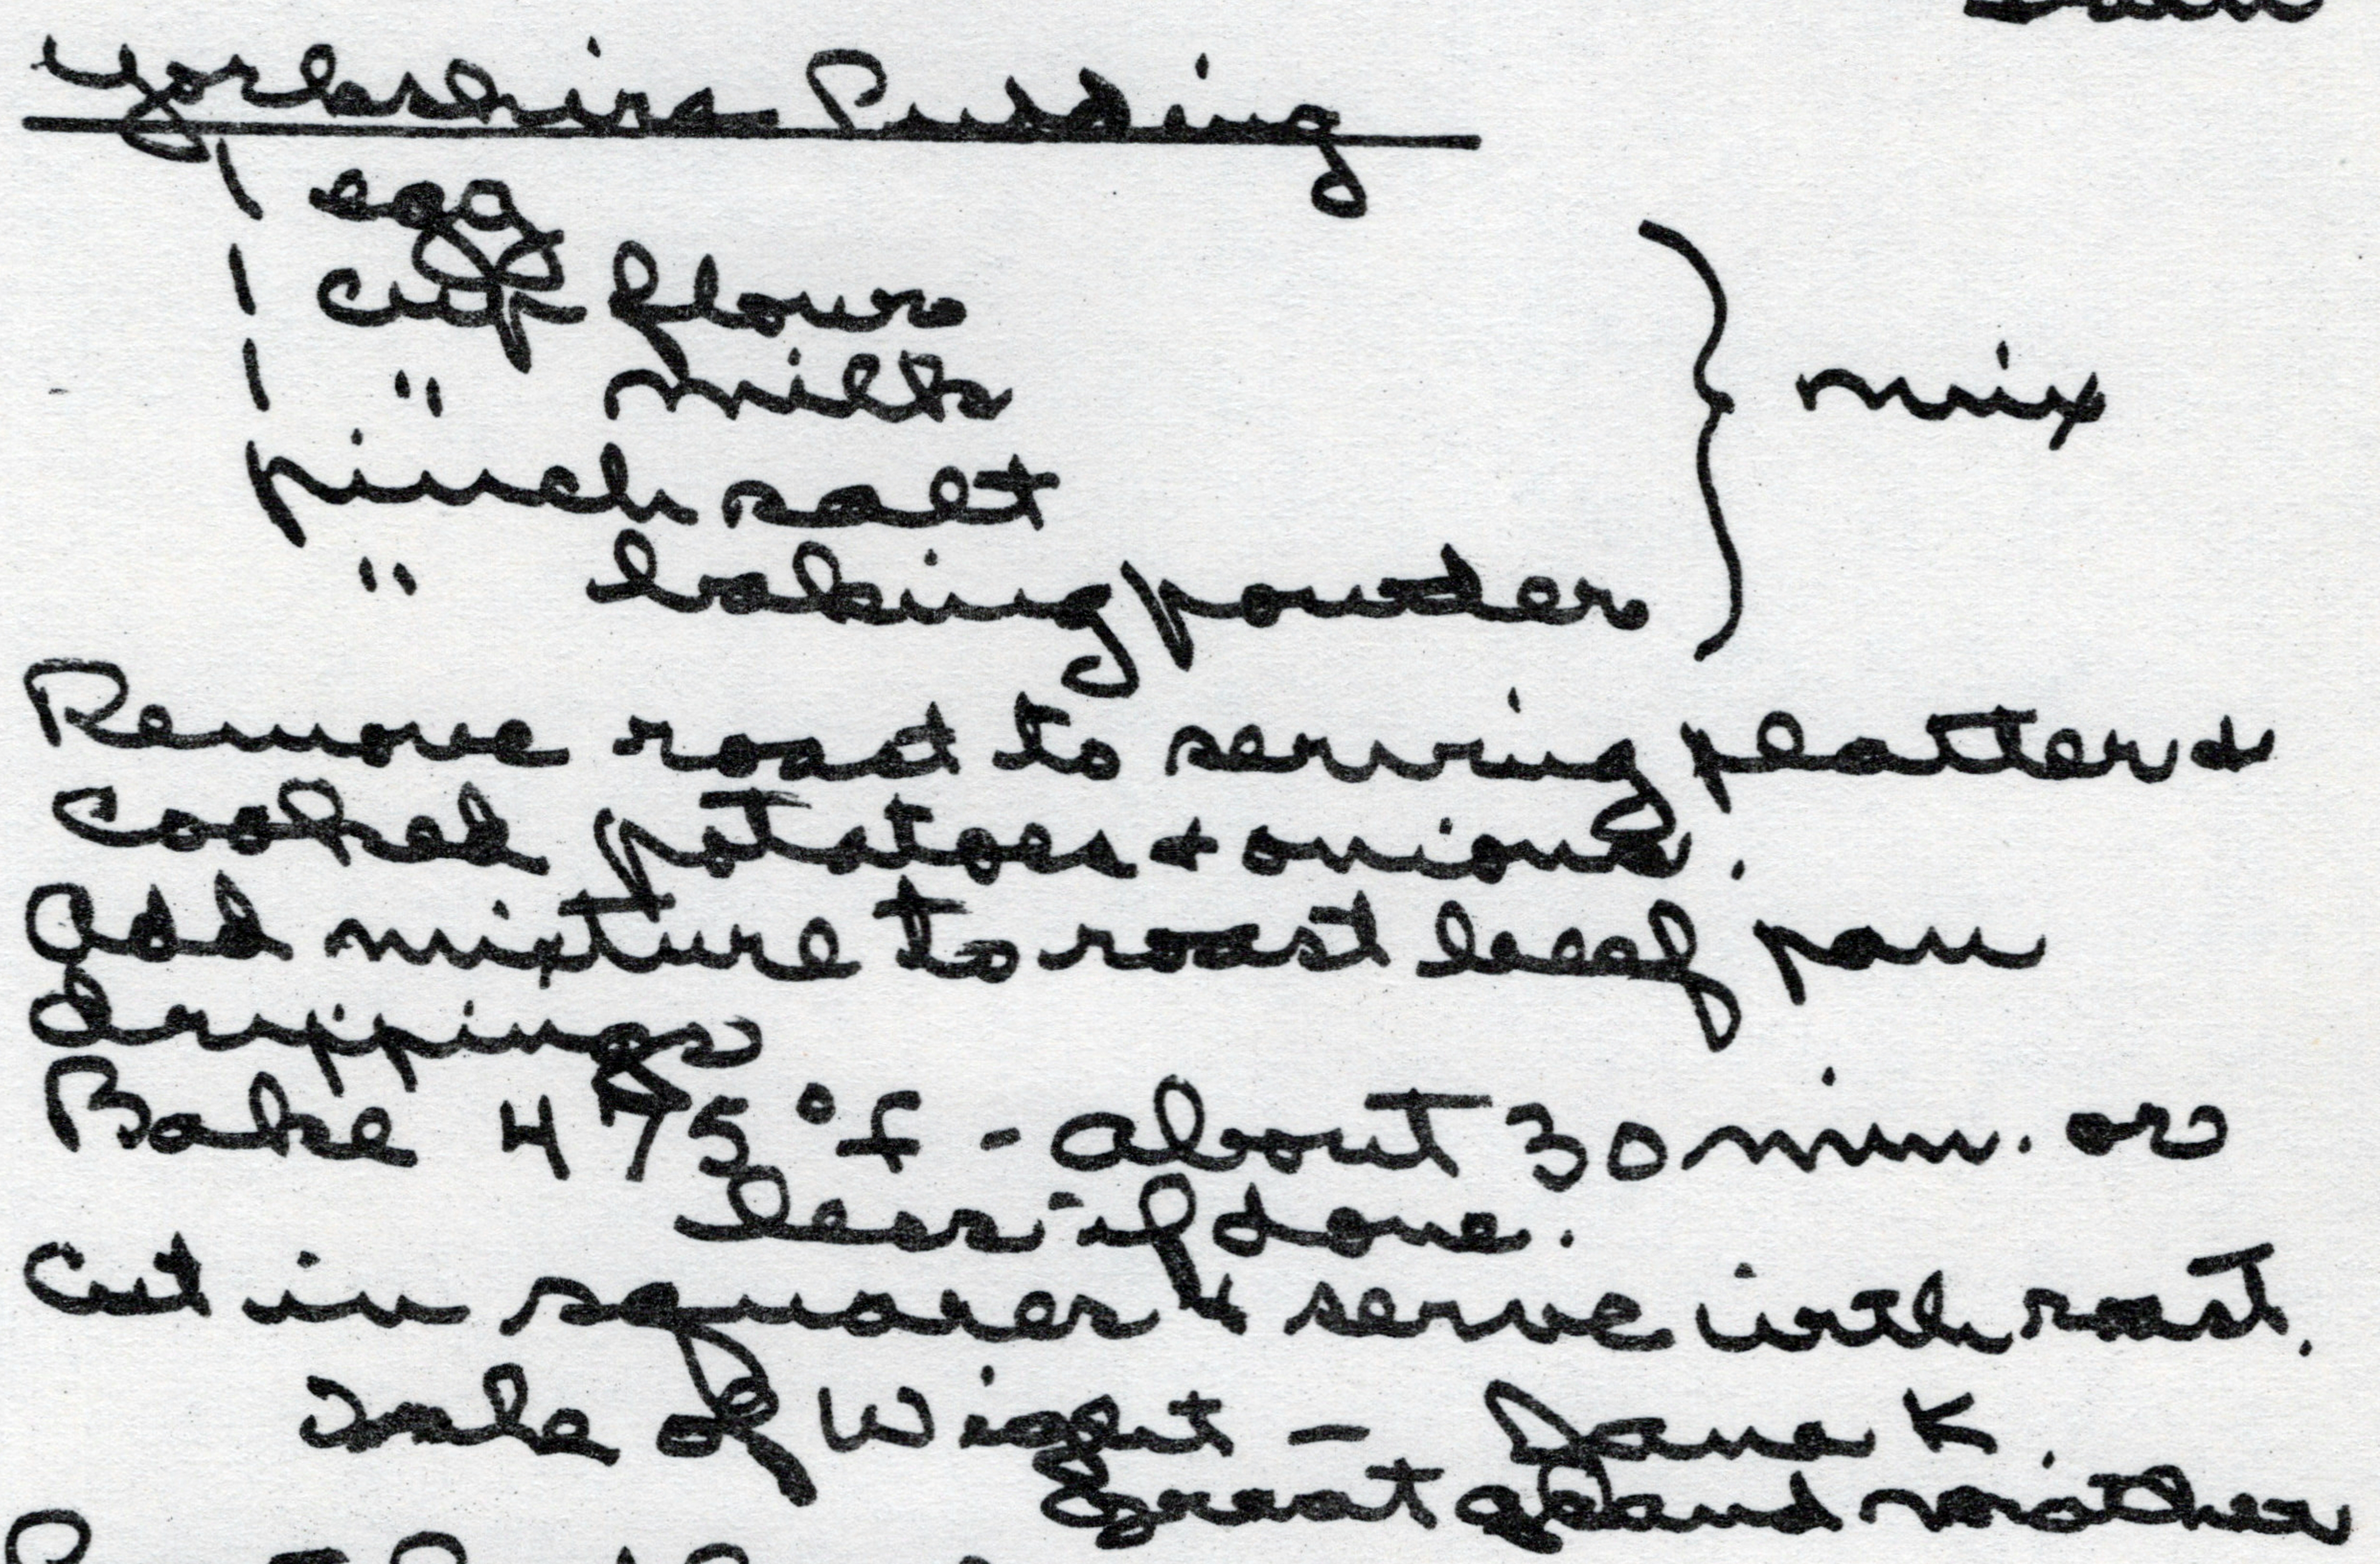 Yorkshire Pudding
1 egg
1 cup flour
1 " milk
pinch salt
" baking powder
} mix
Remove roast to serving platter &
cooked potatoes & onions.
Add mixture to roast beef pan
drippings
Bake 475°f - about 30 min. or
less - if done.
Cut in squares & serve with roast.
Isle of Wight - Jane K.
Great grand mother